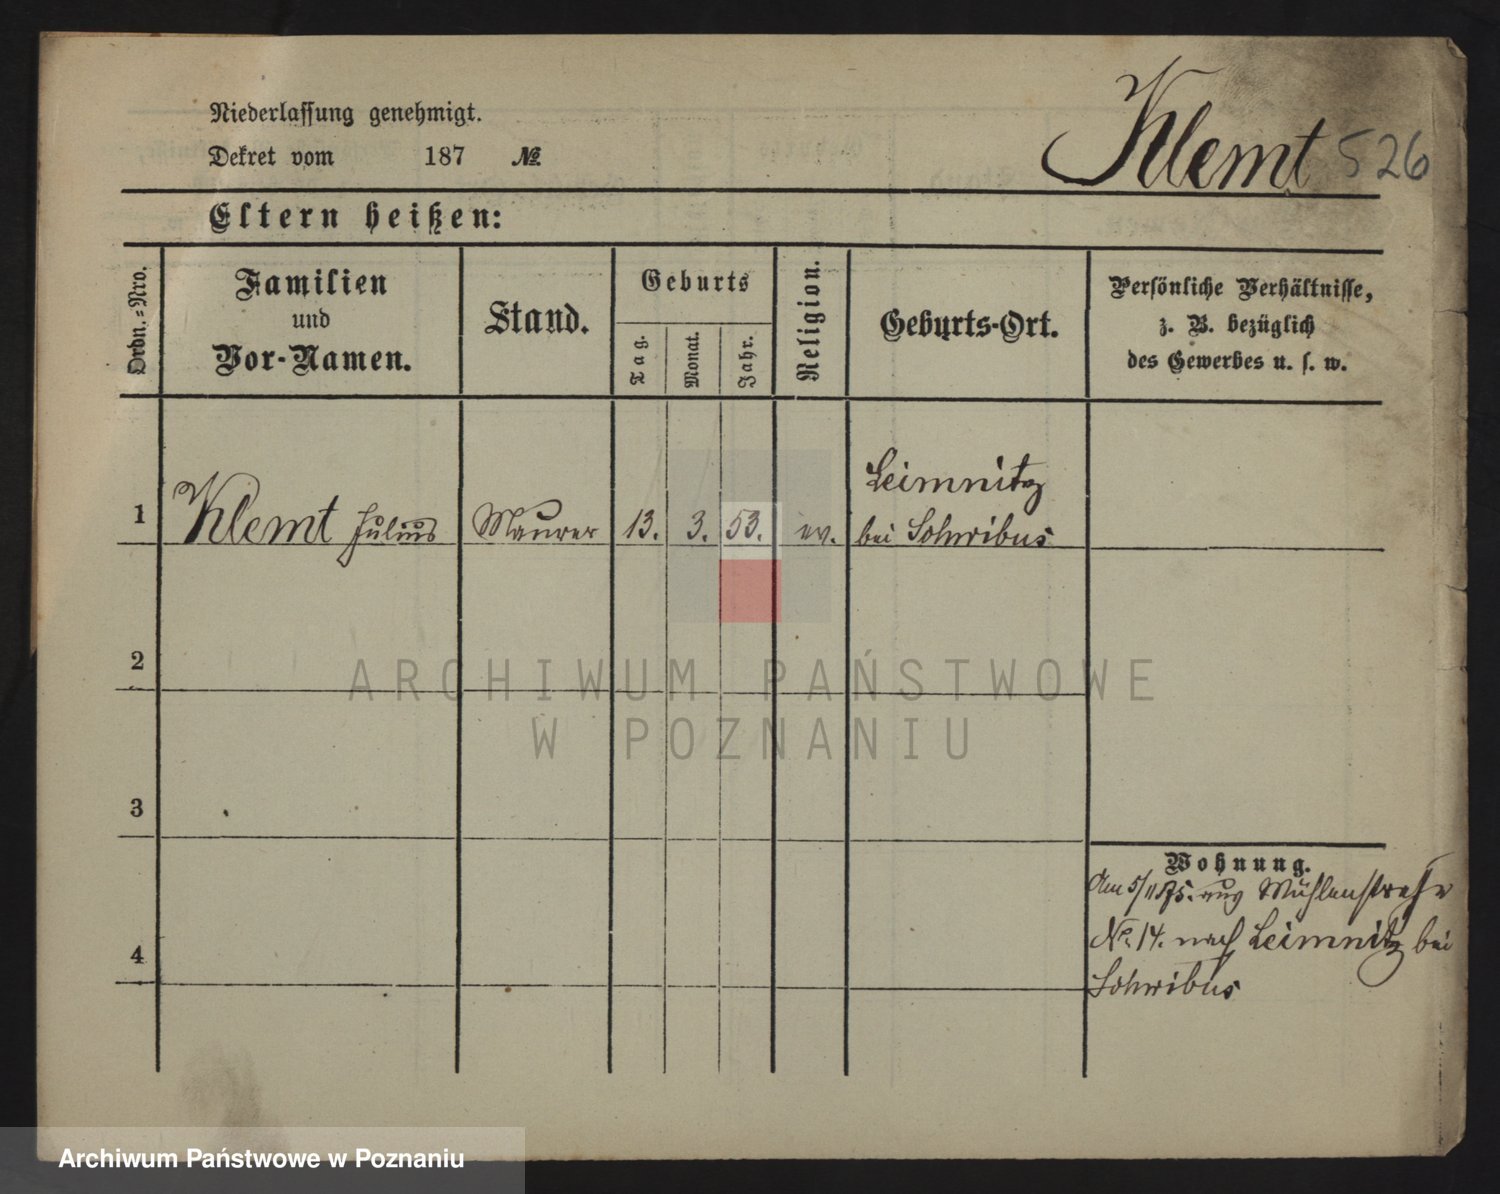 Niederlassung genehmigt.
Dekret vom 187 №
Klemt 526
Eltern heißen:
Ordn.-Nro.
Familien
und
Vor-Namen.
Stand.
Geburts
Tag.
Monat.
Jahr.
Religion.
Geburts-Ort.
Persönliche Verhältnisse,
z. B. bezüglich
des Gewerbes u. s. w.
1 Klemt Julius Maurer 13. 3. 53. ev. Leimnitz
bei Schwibus
2
3
4
Wohnung.
Am 5/11 75. aus Mühlenstraße
No. 14. nach Leimnitz bei
Schwibus
ARCHIWUM PAŃSTWOWE
W POZNANIU
Archiwum Państwowe w Poznaniu